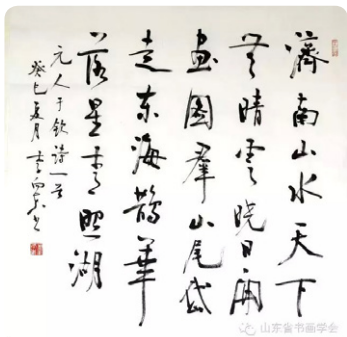 濟南山水天下
無晴雲曉日開
畫圖群山尾岱
走東海鵲華
落星青照湖
元人于欽詩一首
癸巳夏月
山东省书画学会